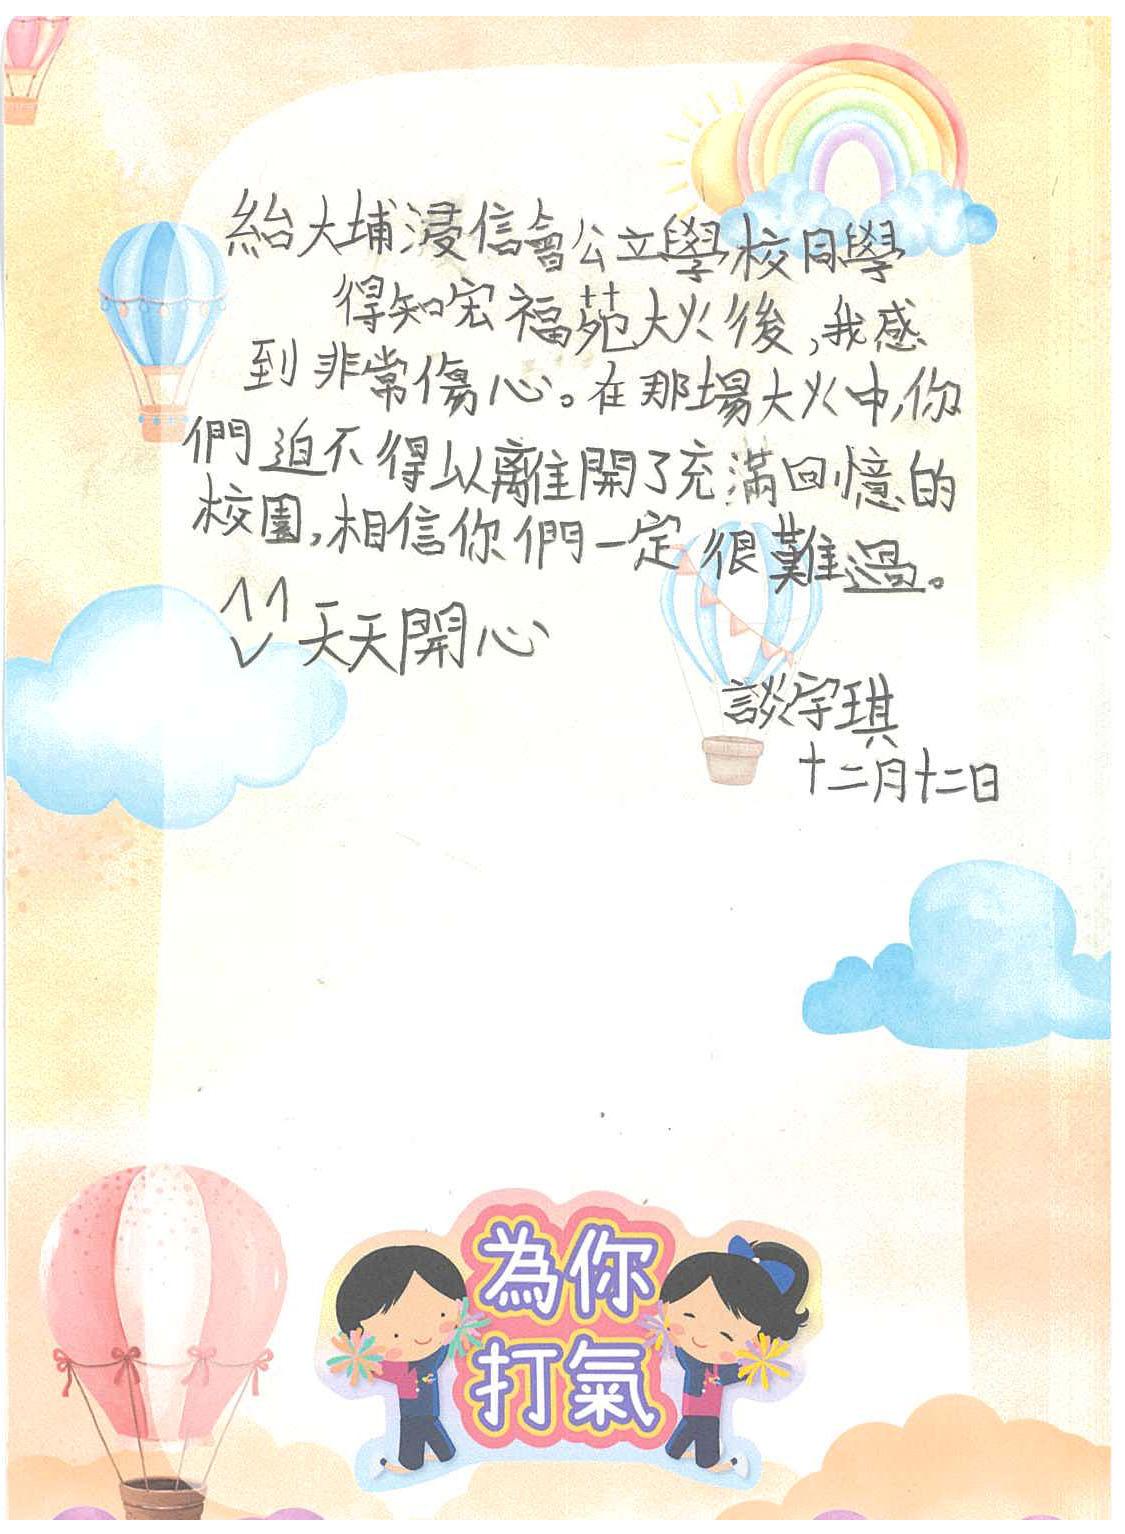 給大埔浸信會公立學校同學
得知宏福苑大火後,我感
到非常傷心。在那場大火中,你
們迫不得以離開了充滿回憶的
校園,相信你們一定很難過。
天天開心
談宇琪
十二月十二日
為你
打氣